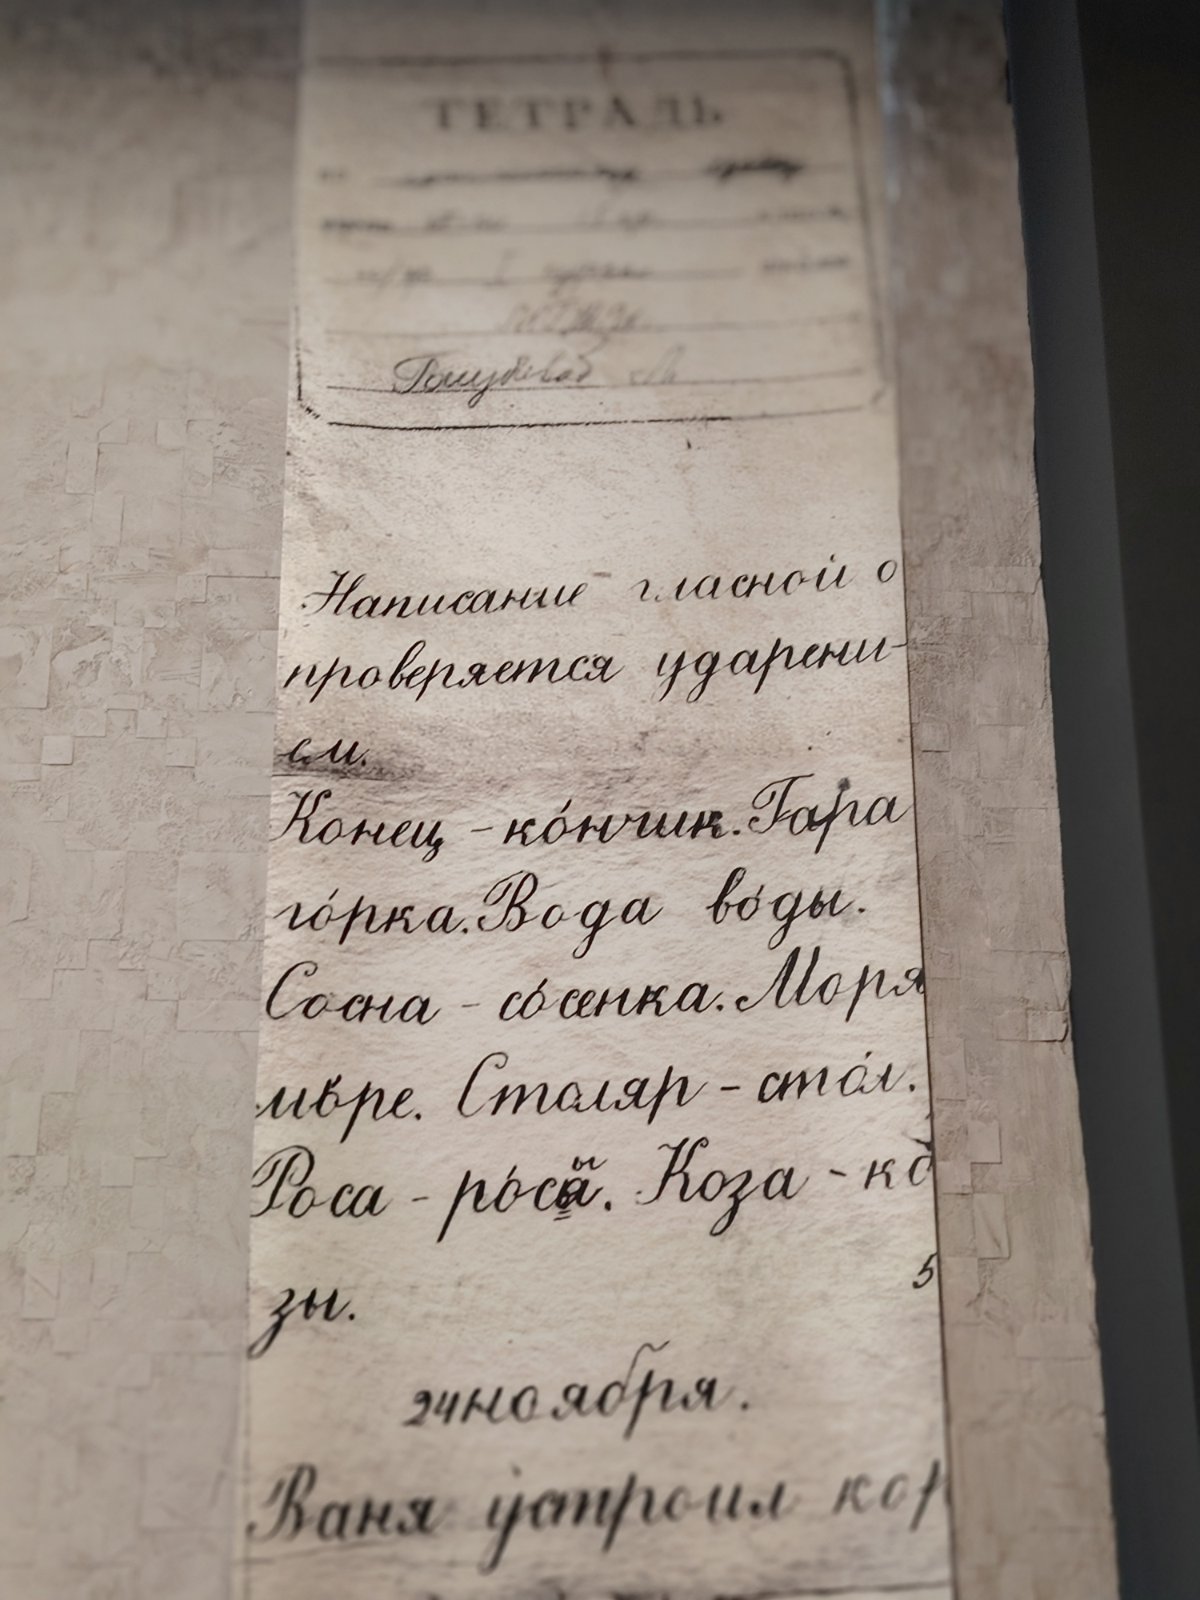 ТЕТРАДЬ
Написание гласной о
проверяется ударени-
ем.
Конец - ко́нчик. Гара
го́рка. Вода во́ды.
Сосна - со́сенка. Моря
мо́ре. Столяр - сто́л.
Роса - ро́сы. Коза - ко́
зы.
5
24 ноября.
Ваня устроил кор